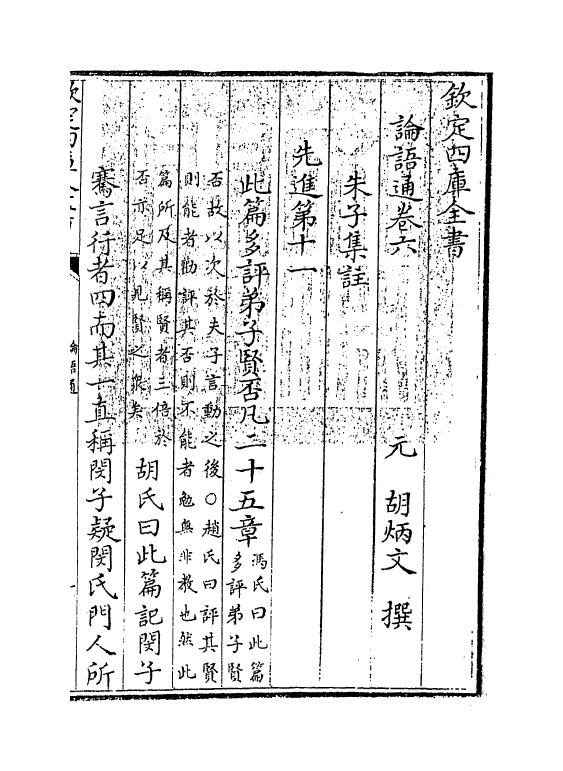 欽定四庫全書
論語通卷六
元 胡炳文 撰
朱子集註
先進第十一
此篇多評弟子賢否凡二十五章馮氏曰此篇
多評弟子賢
否故以次於夫子言動之後○趙氏曰評其賢
則能者勸評其否則不能者勉無非教也然此
篇所及其稱賢者三倍於
否亦足以見賢之衆矣
胡氏曰此篇記閔子
騫言行者四而其一直稱閔子疑閔氏門人所
論語通
一